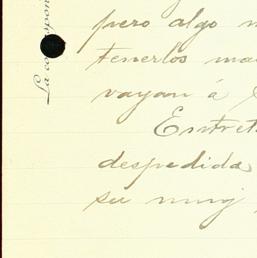 La correspon
pero algo
tenerlos
vayan á
Entret
despedida
su muy